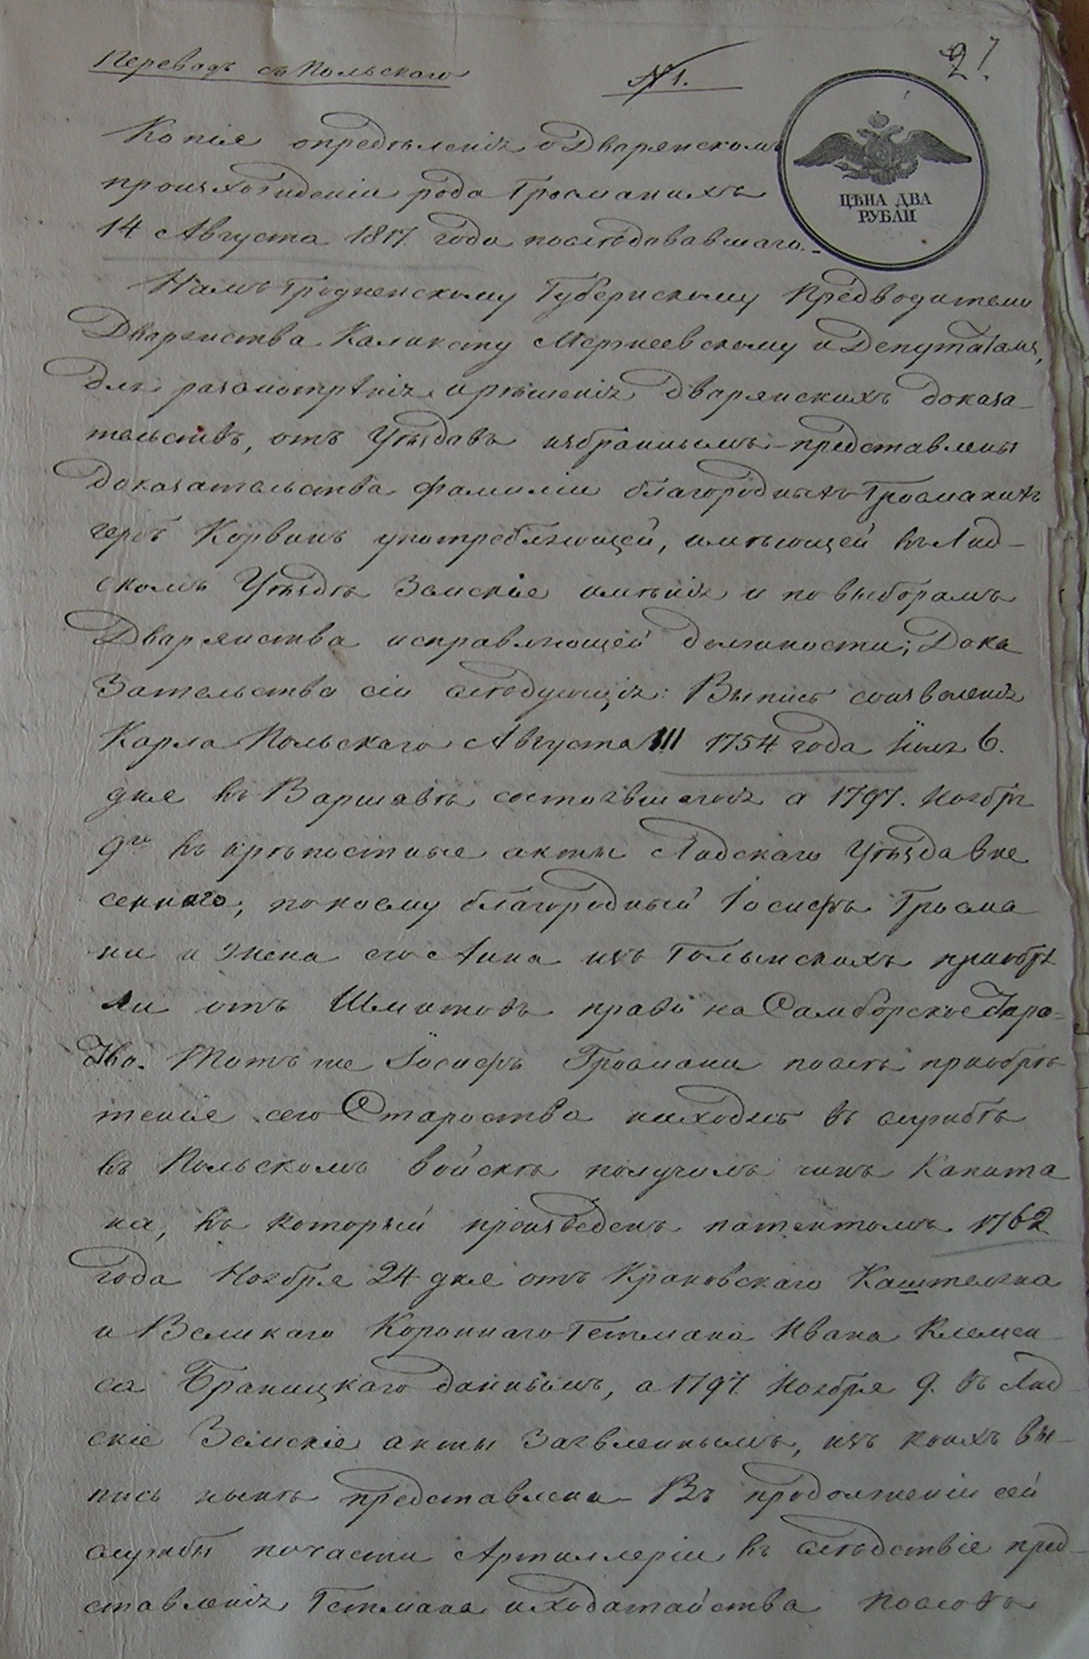 Переводъ съ Польскаго
№ 1.
21.
ЦѢНА ДВА
РУБЛИ
Копія опредѣленія о Дворянскомъ
происхожденіи рода Гросманихъ
14 Августа 1817 года послѣдовавшаго.
Намъ Гродненскому Губернскому Предводителю
Дворянства Каликсту Мержеевскому и Депутатамъ,
для разсмотрѣнія и рѣшенія Дворянскихъ доказа-
тельствъ, отъ Уѣздовъ избраннымъ представлены
доказательства фамиліи благородныхъ Гросманихъ
гербъ Корвинъ употребляющей, имѣющей въ Лид-
скомъ Уѣздѣ Земскіе имѣнія и по выборамъ
Дворянства исправляющей должности; Дока
зательства сіи слѣдующія: Выпись соизволенія
Короля Польскаго Августа III 1754 года Іюля 6.
дня въ Варшавѣ состоявшагося а 1797. Ноября
9го въ крѣпостные акты Лидскаго Уѣзда вне
сеннаго, по коему благородный Іосифъ Гросма
ни и жена его Анна изъ Голымскихъ приобрѣ
ли отъ Шмитовъ право на Самборское Старо-
ство. Тотъ же Іосифъ Гросмани послѣ приобрѣ-
тенія сего Староства находясь въ службѣ
въ Польскомъ войскѣ получилъ чинъ Капита
на, въ который произведенъ патентомъ 1762
года Ноября 24 дня отъ Краковскаго Каштеляна
и Великаго Короннаго Гетмана Ивана Клемен
са Браницкаго даннымъ, а 1797 Ноября 9. въ Лид-
скіе Земскіе акты заявленнымъ, изъ коихъ вы-
пись нынѣ представлена Въ продолженіи сей
службы по части Артиллеріи въ слѣдствіе пред-
ставленія Гетмана и ходатайства Пословъ